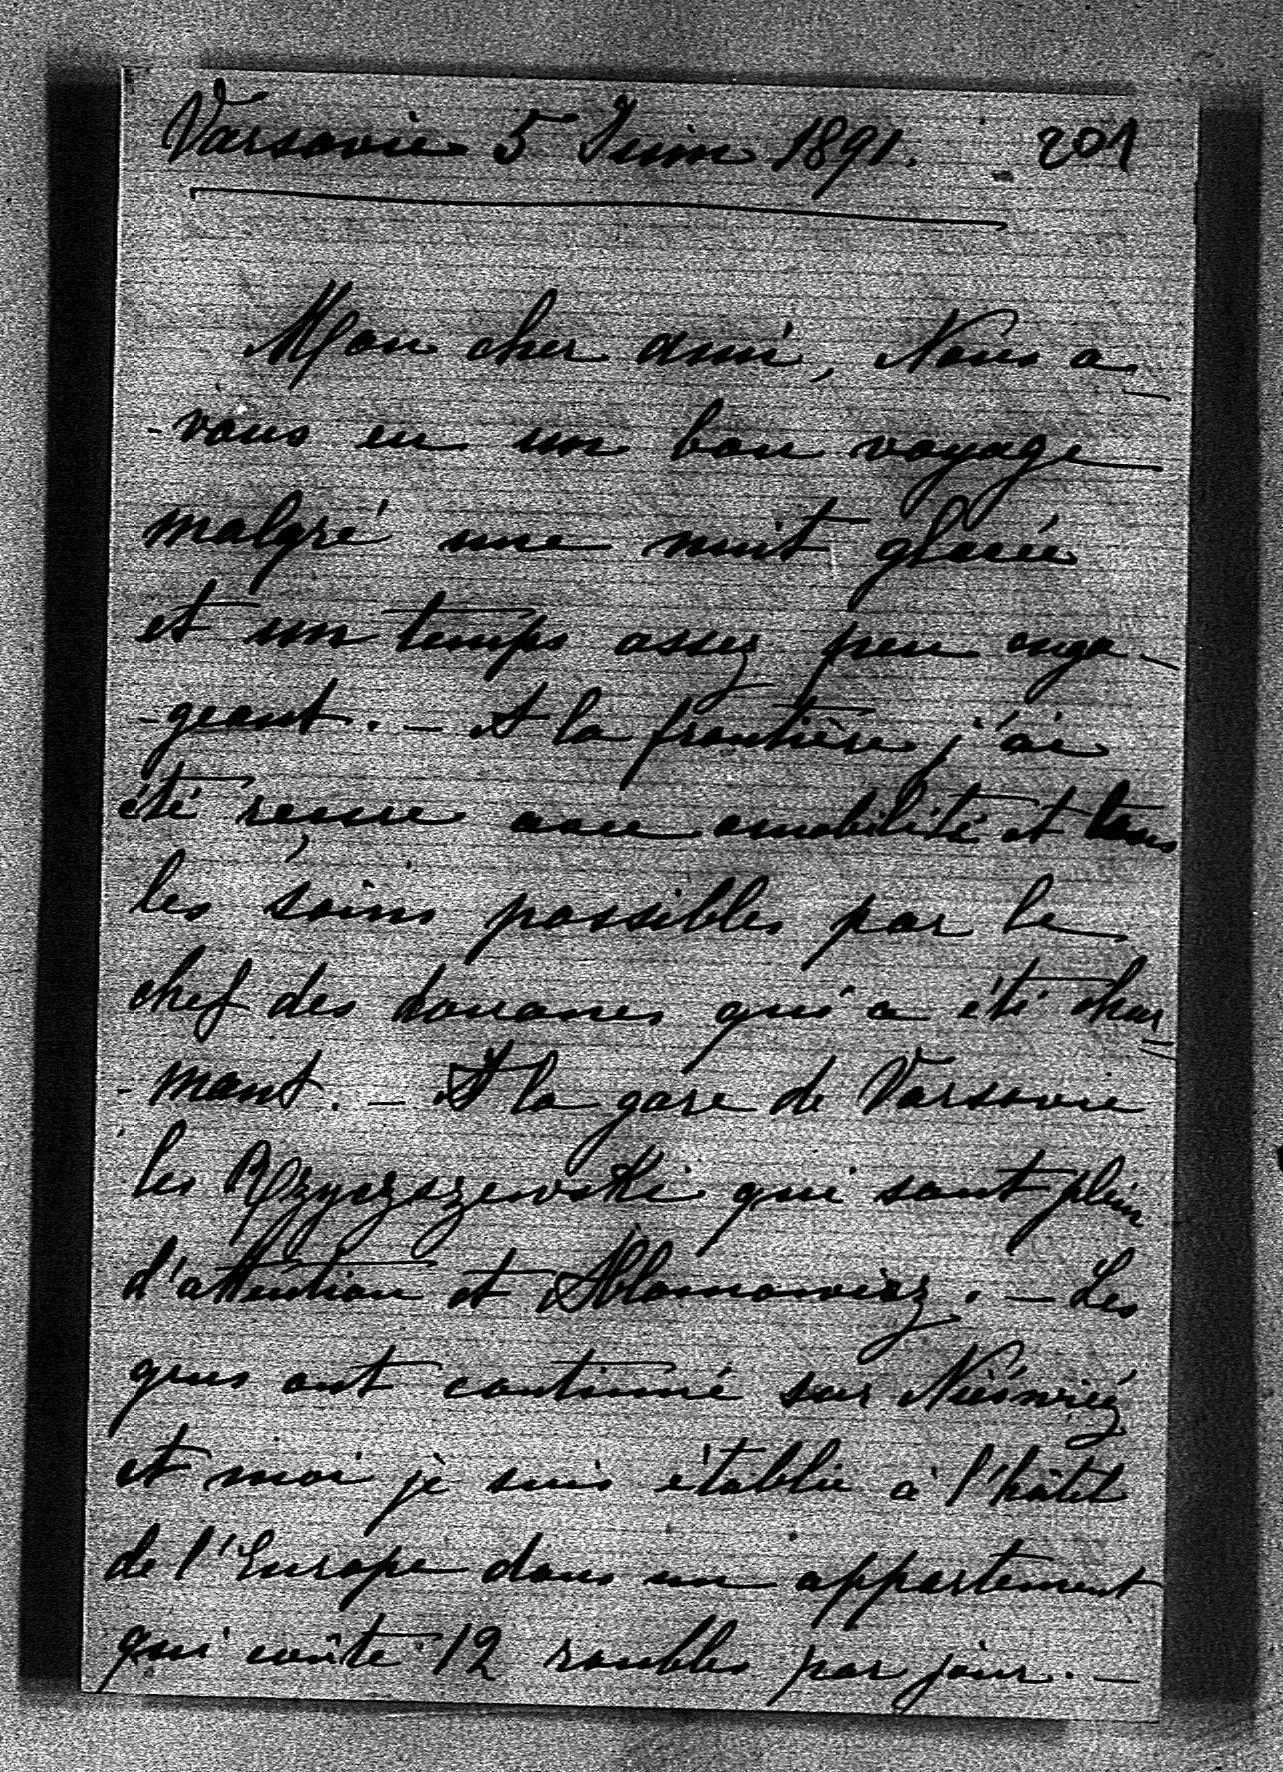 Varsovie 5 Juin 1891. 201
Mon cher ami, Nous a-
-vons eu un bon voyage
malgré une nuit glacée
et un temps assez peu enga-
-geant. - A la frontière j'ai
été reçue avec amabilité et tous
les soins possibles par le
chef des douanes qui a été char=
-mant. - A la gare de Varsovie
les Rzyszczewski qui sont plein
d'attention et Ablamowicz. - Les
gens ont continué sur Nieśwież
et moi je suis établie à l'hôtel
de l'Europe dans un appartement
qui coûte 12 roubles par jour. -